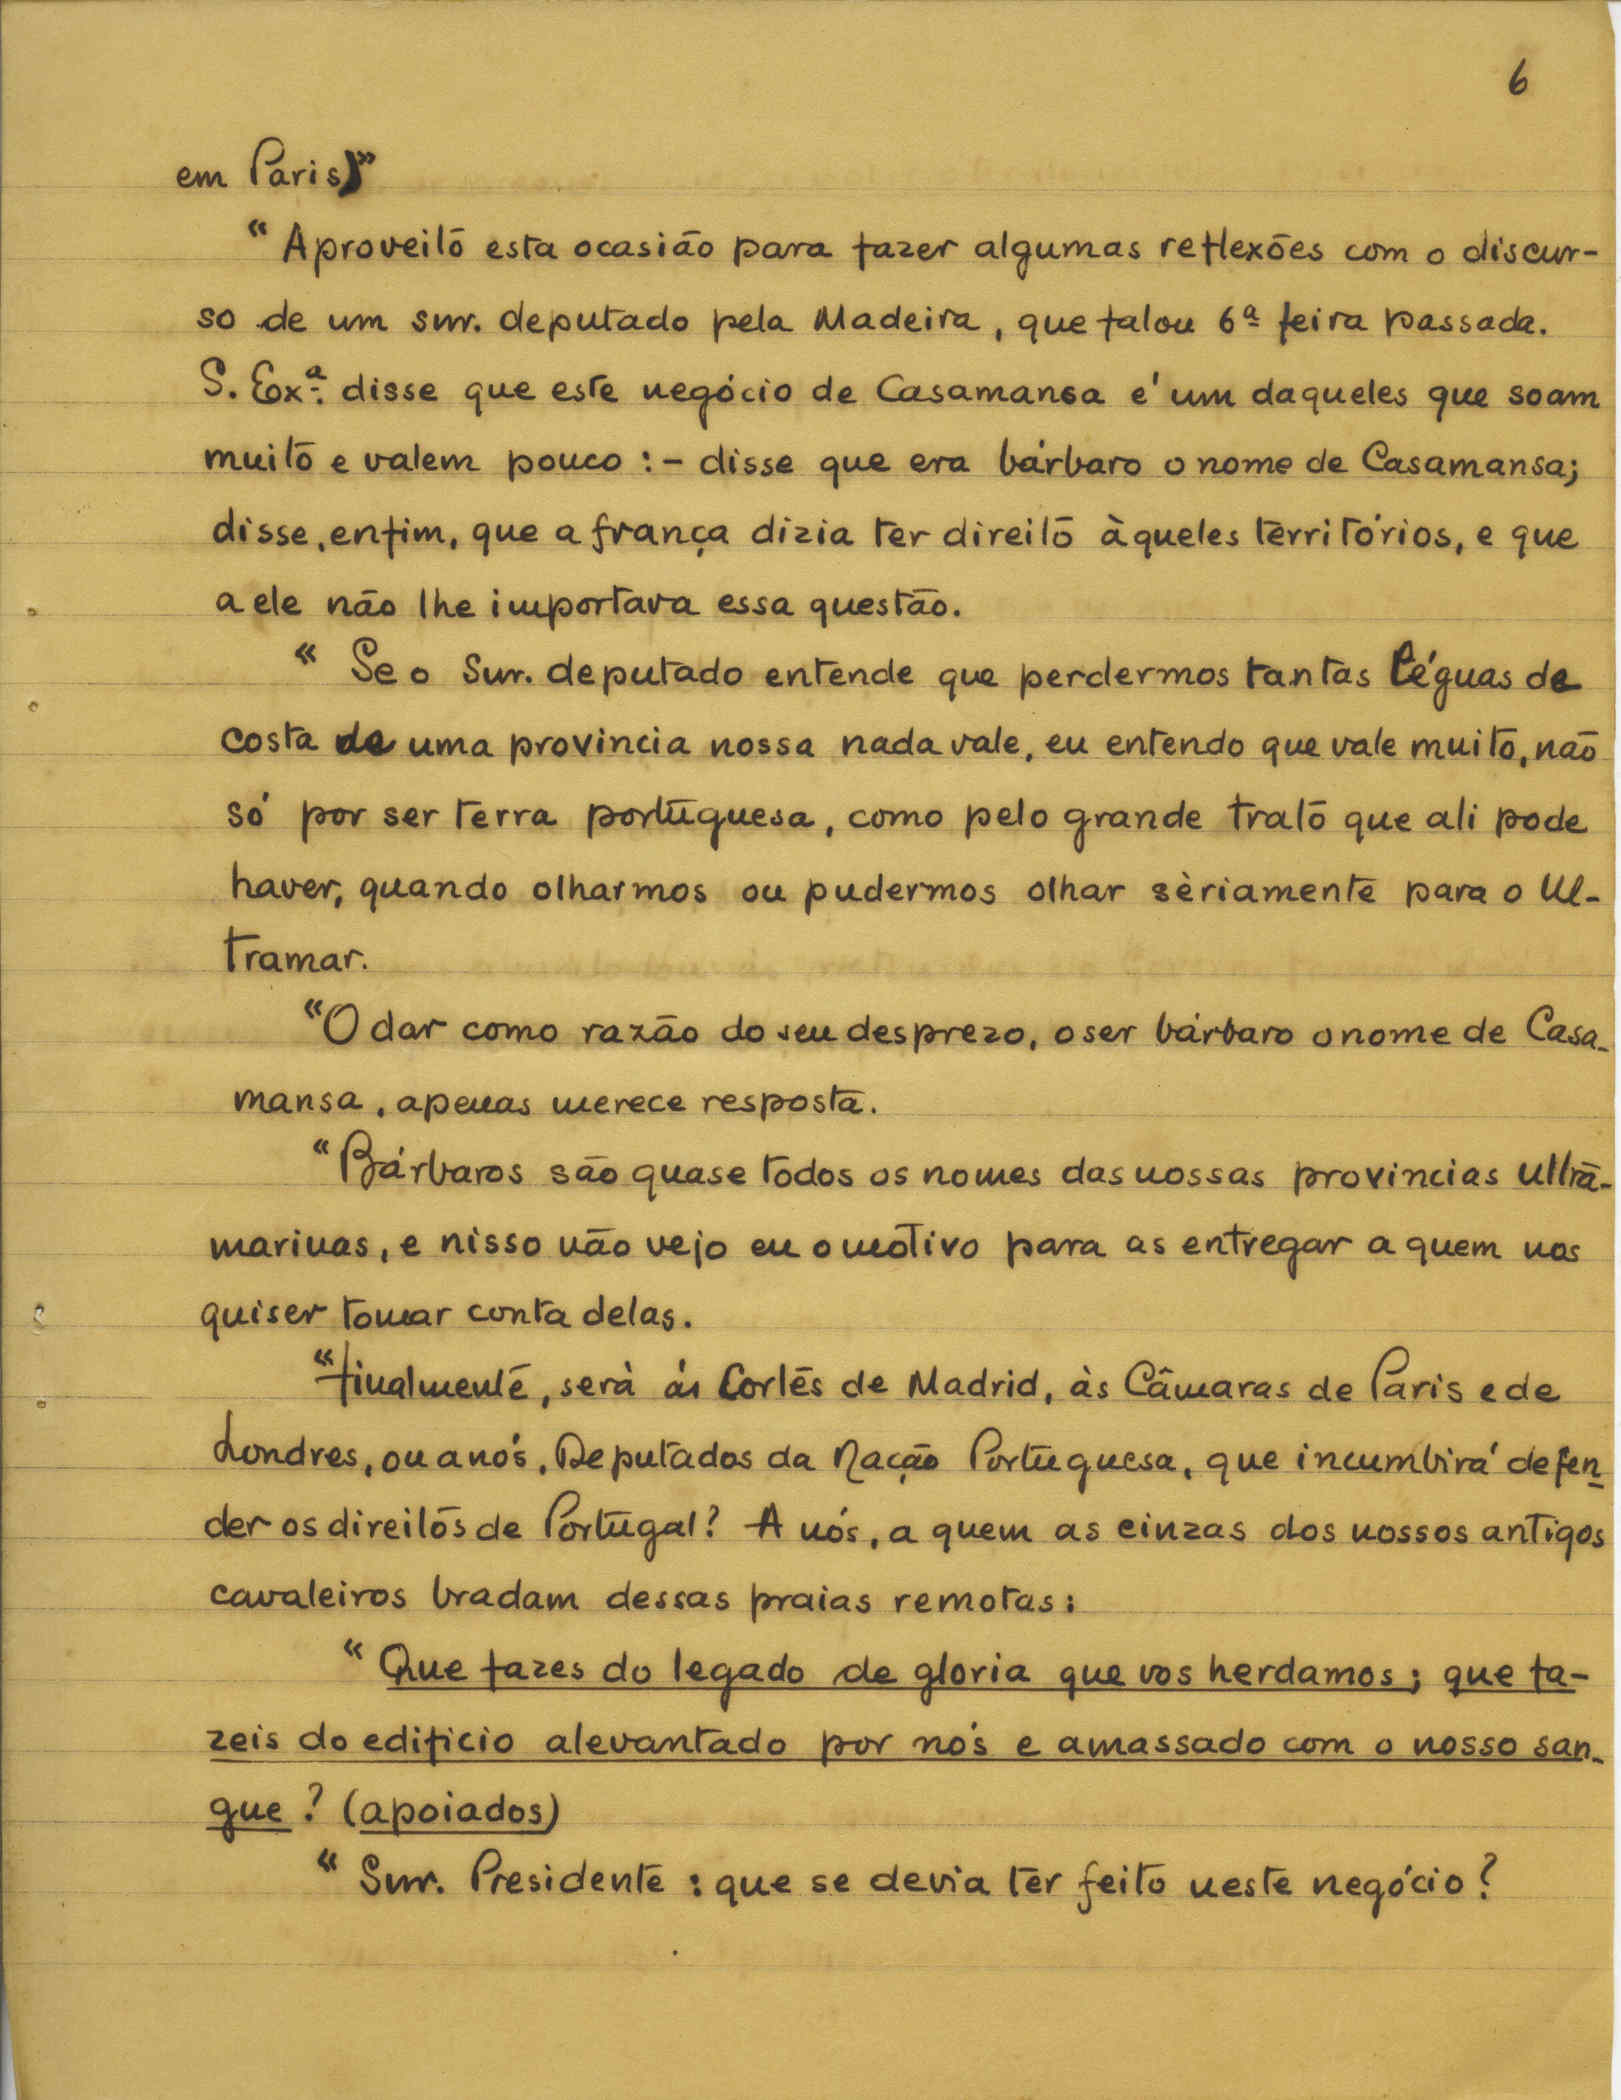 6
em Paris)"
"Aproveito esta ocasião para fazer algumas reflexões com o discur-
so de um snr. deputado pela Madeira, que falou 6ª feira passada.
S. Exª. disse que este negócio de Casamansa é um daqueles que soam
muito e valem pouco :- disse que era bárbaro o nome de Casamansa;
disse, enfim, que a frança dizia ter direito àqueles territórios, e que
a ele não lhe importava essa questão.
" Se o Snr. deputado entende que perdermos tantas léguas de
costa de uma provincia nossa nada vale, eu entendo que vale muito, não
só por ser terra portuguesa, como pelo grande trato que ali pode
haver, quando olharmos ou pudermos olhar sèriamente para o Ul-
tramar.
"O dar como razão do seu desprezo, o ser bárbaro o nome de Casa-
mansa, apenas merece resposta.
"Bárbaros são quase todos os nomes das nossas provincias ultra-
marinas, e nisso não vejo eu o motivo para as entregar a quem nos
quiser tomar conta delas.
"finalmente, será ás Cortes de Madrid, às Câmaras de Paris e de
Londres, ou a nós, Deputados da Nação Portuguesa, que incumbirá defen
der os direitos de Portugal? A nós, a quem as cinzas dos nossos antigos
cavaleiros bradam dessas praias remotas:
" Que fazes do legado de gloria que vos herdamos; que fa-
zeis do edificio alevantado por nós e amassado com o nosso san-
gue? (apoiados)
" Snr. Presidente : que se devia ter feito neste negócio?